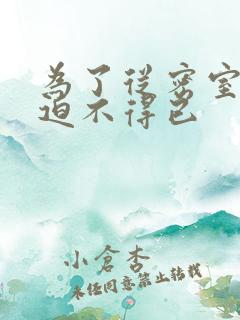 為了從密室
迫不得已
小倉杏
未經同意禁止轉載